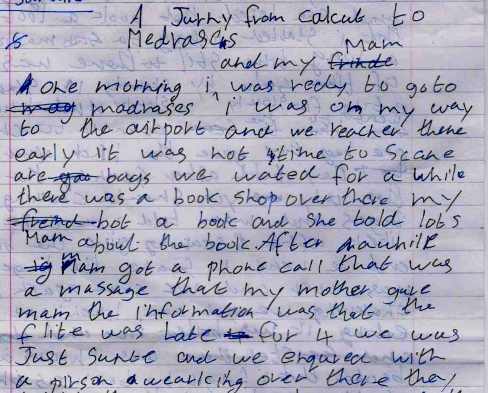 A Jurny from calcut to
Medrases
Mam
and my frinde
one morning i was redy to goto
madrases i was on my way
to the airport and we reacher there
early it was not time to Scane
are bags we wated for a while
there was a book shop over there my
freind bot a book and she told lots
Mam about the book. After awhile
Mam got a phone call that was
a massage that my mother gave
mam the information was that the
flite was Late for 4 we was
Just
and we enqured with
a pirson a wearlcing over there they